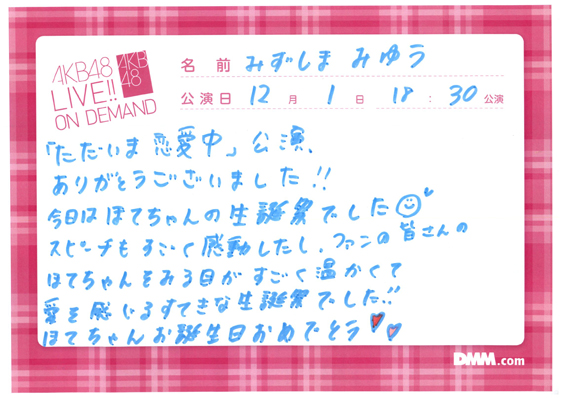 AKB48
LIVE!!
ON DEMAND
AKB
48
名前 みずしま みゆう
公演日 12月 1日 18:30公演
「ただいま 恋愛中」公演、
ありがとうございました!!
今日は ほてちゃんの生誕祭でした
スピーチもすごく感動したし、ファンの皆さんの
ほてちゃんをみる目がすごく温かくて
愛を感いるすてきな生誕祭でした!!
ほてちゃんお誕生日おめでとう
DMM.com